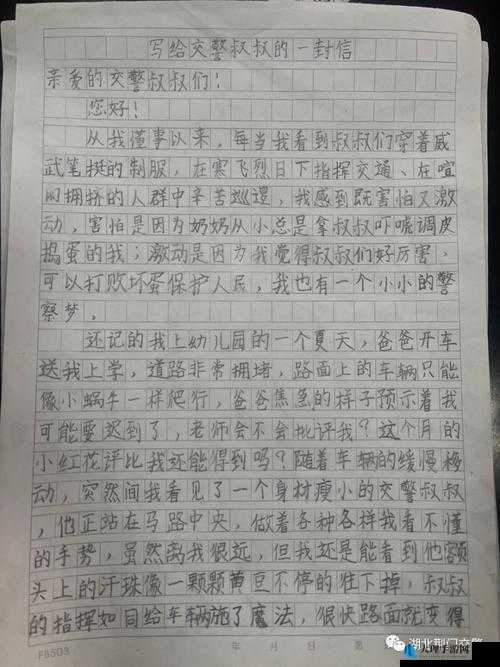 写给交警叔叔的一封信
亲爱的交警叔叔们！
您好！
从我懂事以来，每当我看到叔叔们穿着威
武笔挺的制服，在寒飞烈日下指挥交通、在喧
闹拥挤的人群中辛苦巡逻，我感到既害怕又激
动，害怕是因为奶奶从小总是拿叔叔吓唬调皮
捣蛋的我；激动是因为我觉得叔叔们好厉害，
可以打败坏蛋保护人民，我也有一个小小的警
察梦。
还记的我上幼儿园的一个夏天，爸爸开车
送我上学，道路非常拥堵，路面上的车辆只能
像小蜗牛一样爬行，爸爸焦急的样子预示着我
可能要迟到了，老师会不会批评我？这个月的
小红花评比我还能得到吗？随着车辆的缓慢移
动，突然间我看见了一个身材瘦小的交警叔叔
，他正站在马路中央，做着各种各样我看不懂
的手势，虽然离我很远，但我还是能看到他额
头上的汗珠像一颗颗黄豆不停的往下掉，叔叔
的指挥如同给车辆施了魔法，很快路面就变得
F8503
年 月 日 第
湖北荆门交警
大理手游网